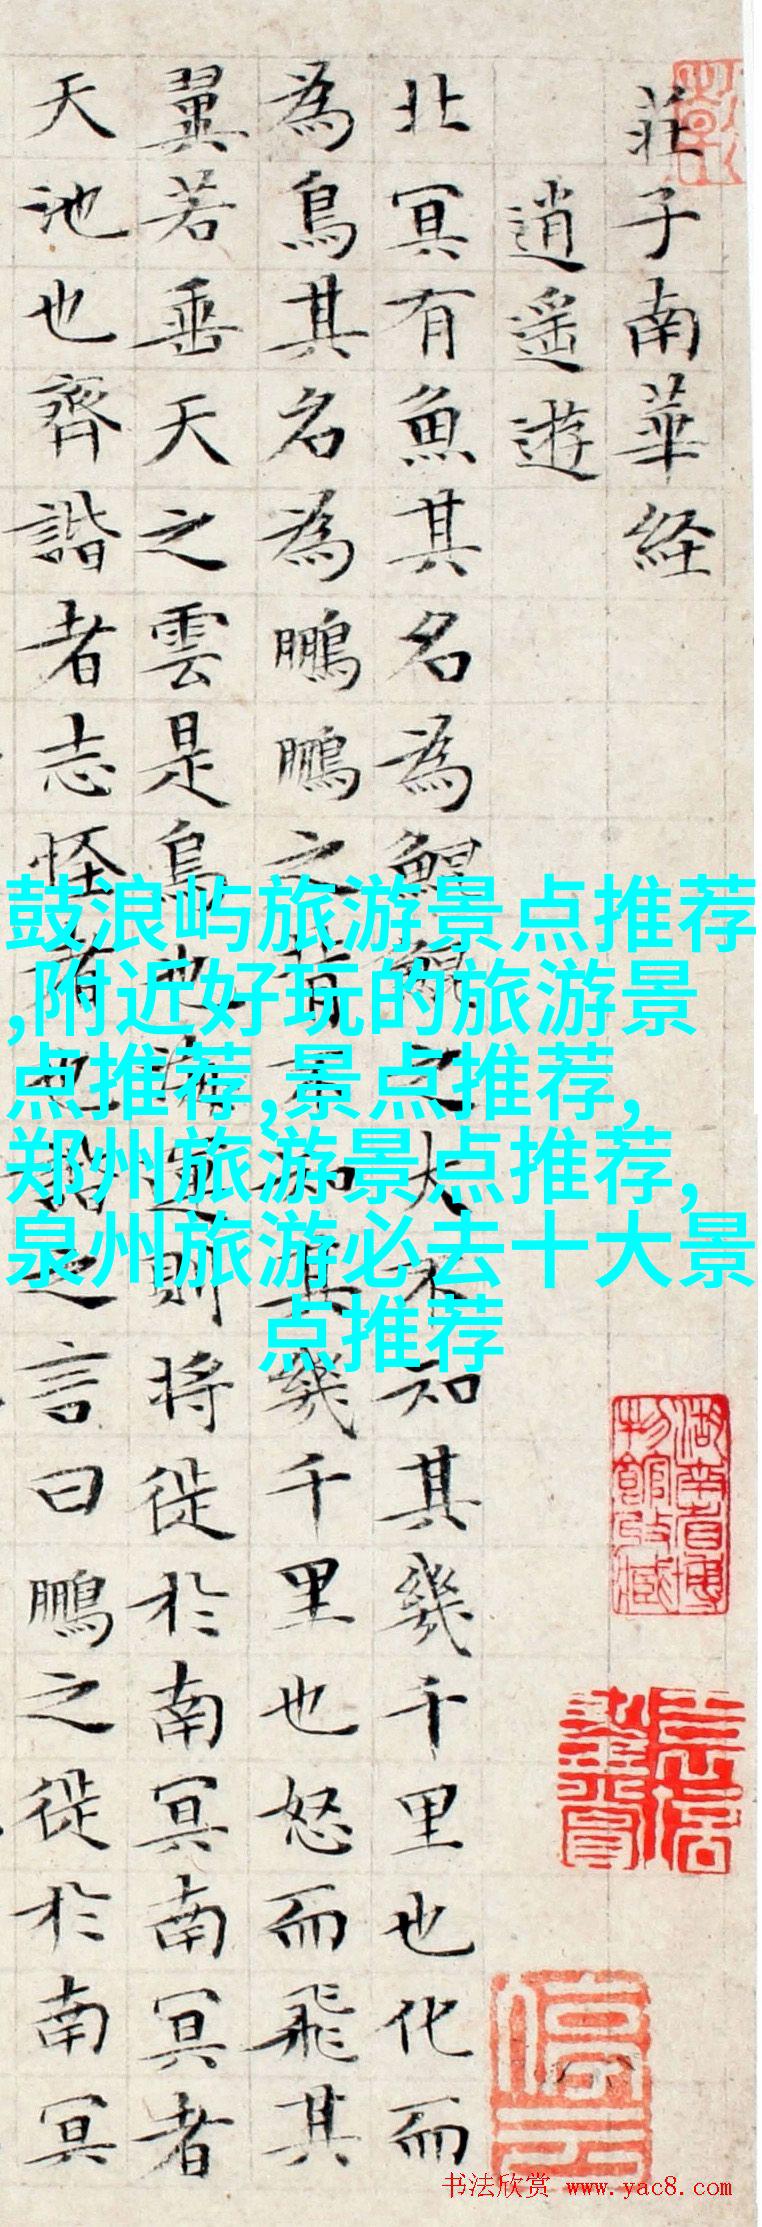 莊子南華經
逍遥遊
北冥有魚其名為鯤鯤之大不知其幾千里也化而
為鳥其名為鵬鵬之背不知其幾千里也怒而飛其
翼若垂天之雲是鳥也海運則将徙於南冥南冥者
天池也齊諧者志怪者也諧之言曰鵬之徙於南冥
鼓浪屿旅游景点推荐
,附近好玩的旅游景
点推荐,景点推荐,
郑州旅游景点推荐,
泉州旅游必去十大景
点推荐
湖南省博
物館收藏
停云
书法欣赏 www.yac8.com